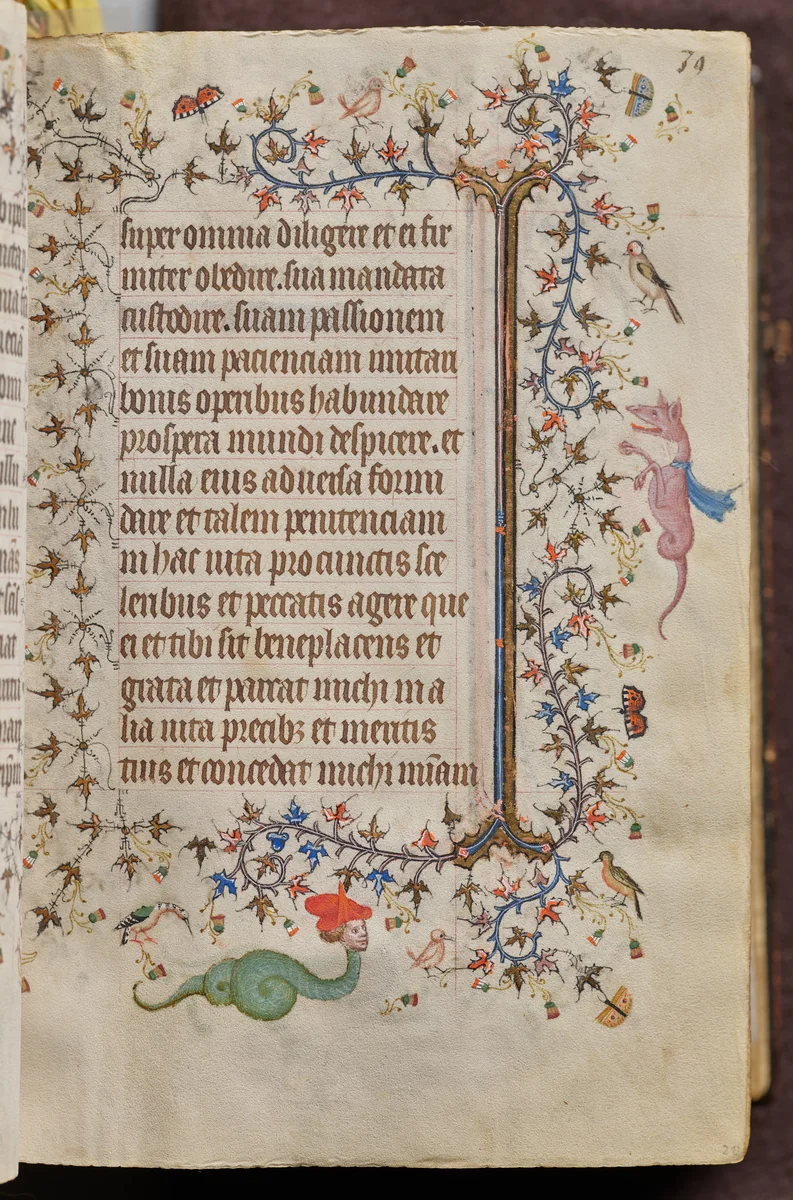 super omnia diligere et ei fir
miter obedire. sua mandata
custodire. suam passionem
et suam pacienciam imitari
bonis operibus habundare
prospera mundi despicere. et
nulla eius adversa formi
dare et talem penitenciam
in hac vita pro cunctis sce
leribus et peccatis agere que
ei et tibi sit beneplacens et
grata et parcat michi ma
lia vita precibꝫ et meritis
tuis et concedat michi miām